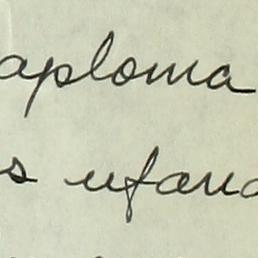 aploma
s ufana